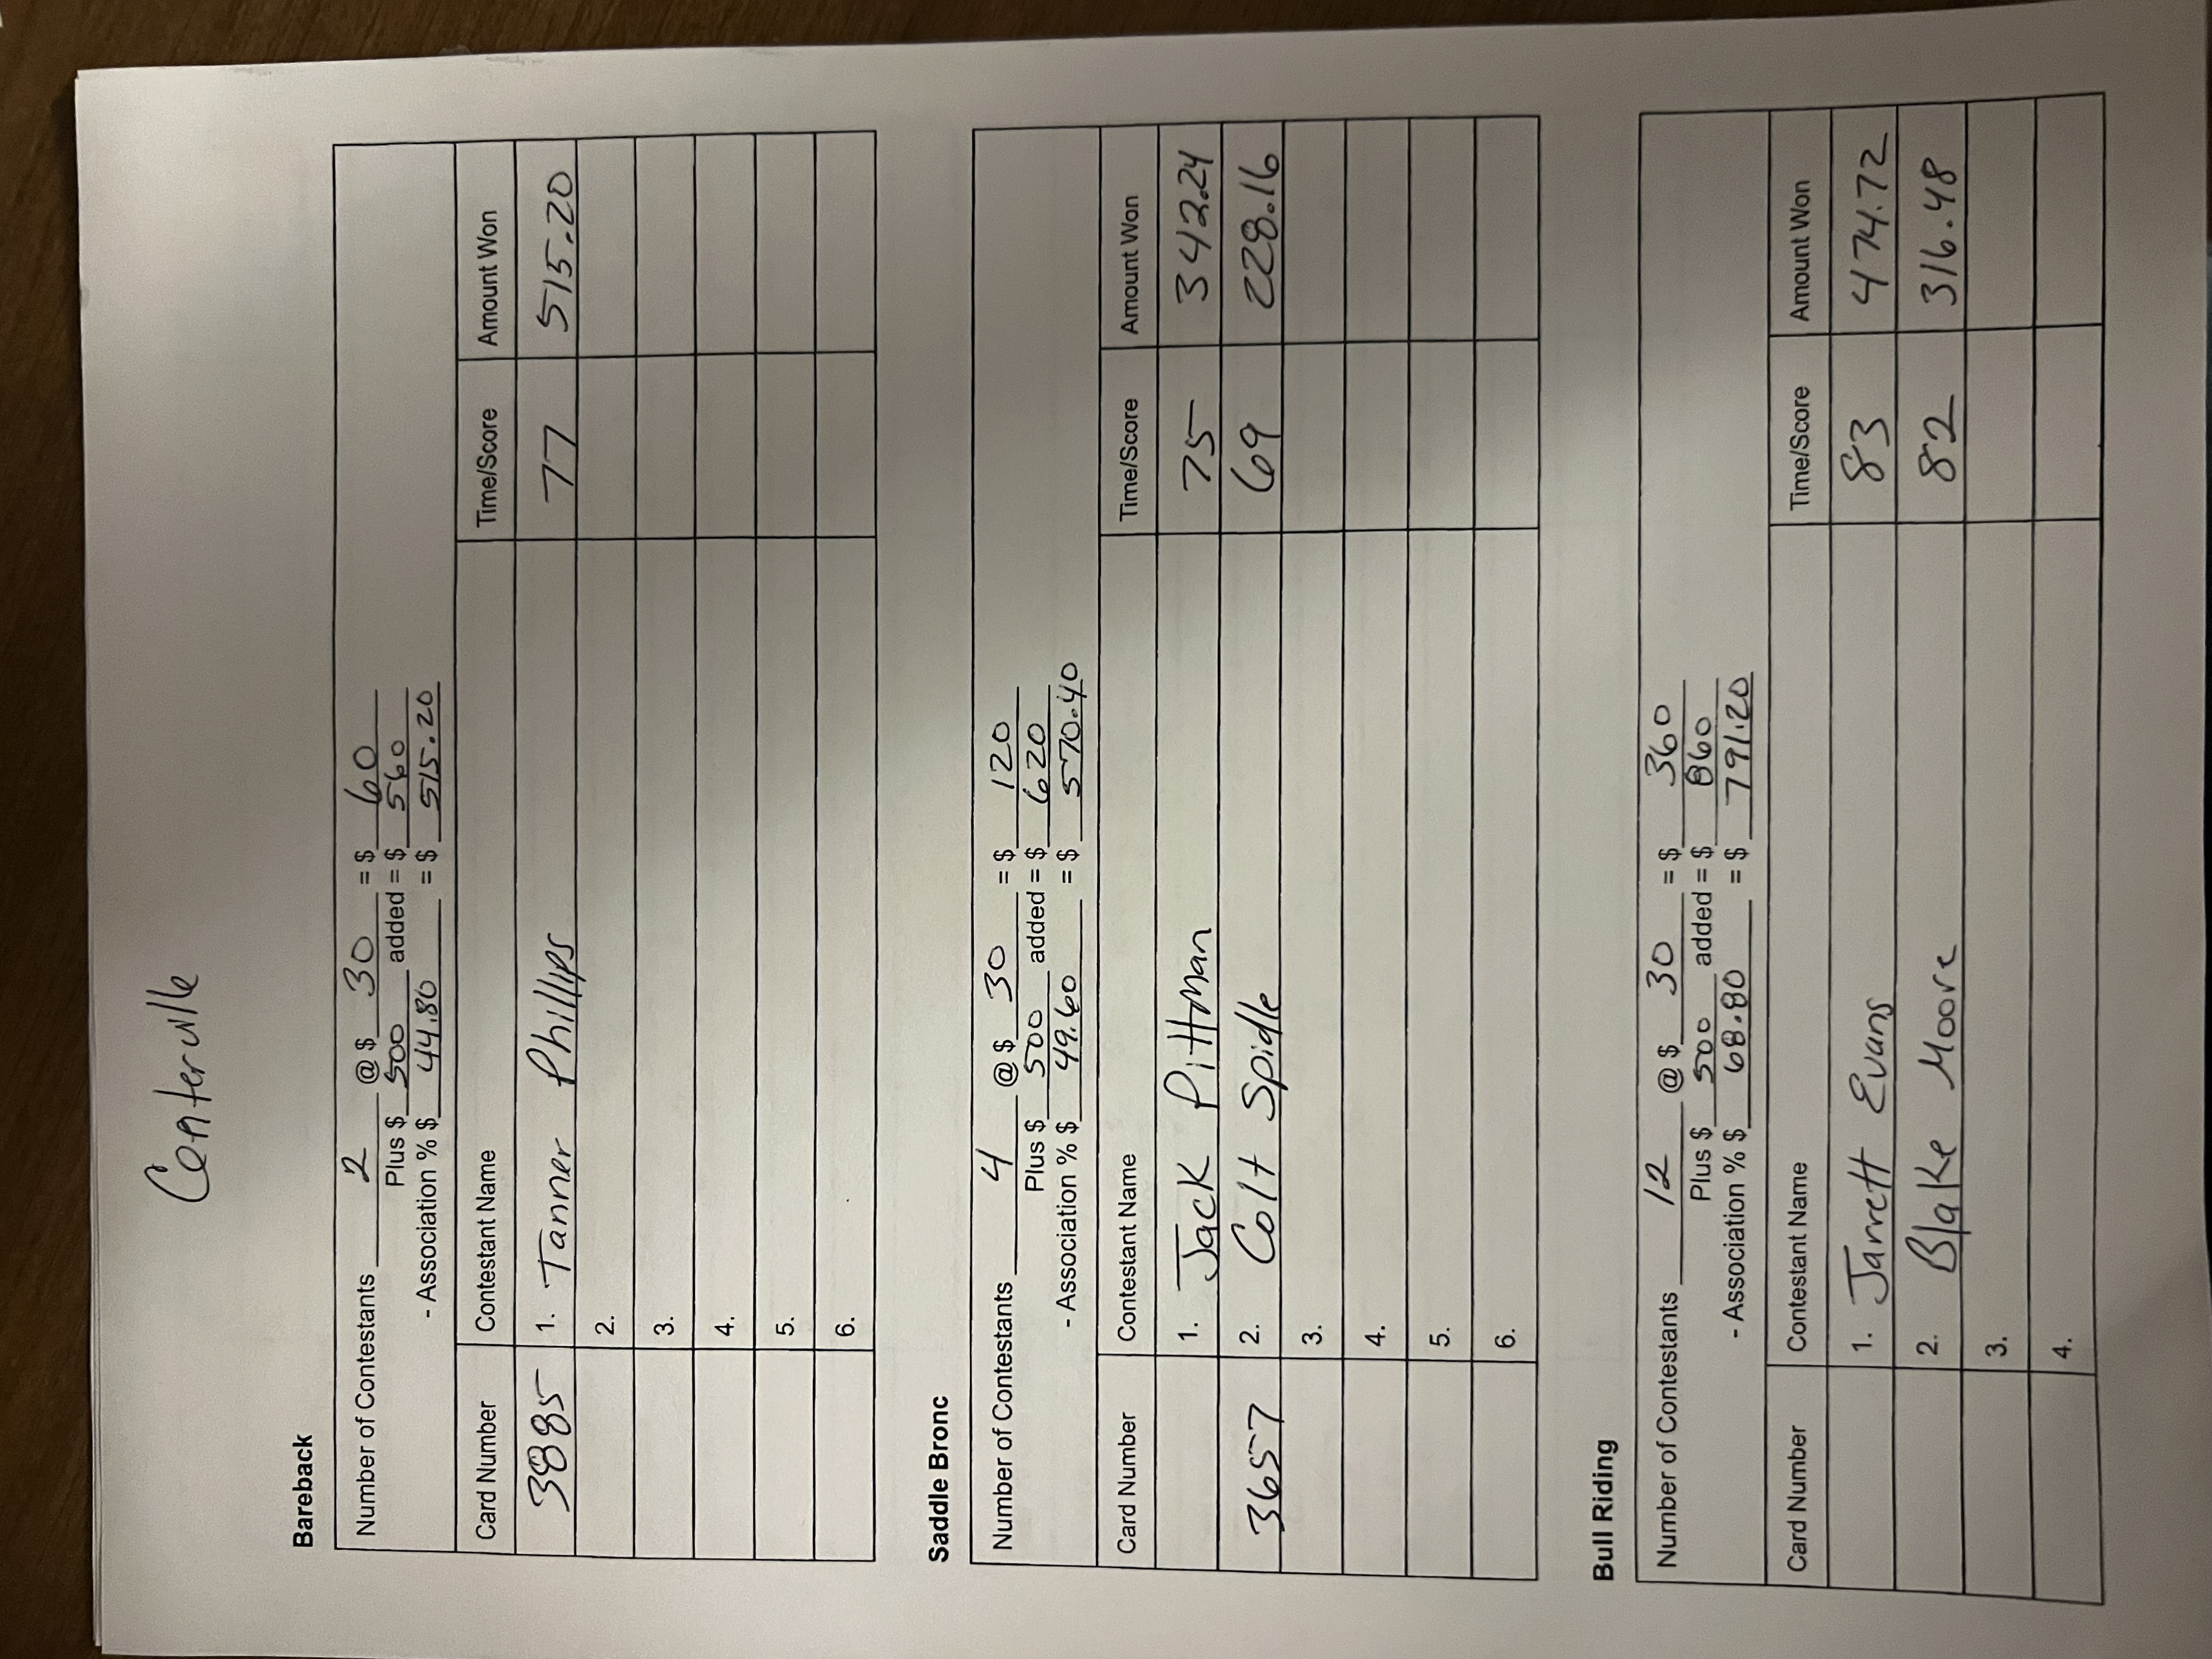 Centerville
Bareback
Number of Contestants 2 @ $ 30 = $ 60
Plus $ 500 added = $ 560
- Association % $ 44.80 = $ 515.20
Card Number Contestant Name Time/Score Amount Won
3885 1. Tanner Phillips 77 515.20
2.
3.
4.
5.
6.
Saddle Bronc
Number of Contestants 4 @ $ 30 = $ 120
Plus $ 500 added = $ 620
- Association % $ 49.60 = $ 570.40
Card Number Contestant Name Time/Score Amount Won
1. Jack Pittman 75 342.24
3657 2. Colt Spidle 69 228.16
3.
4.
5.
6.
Bull Riding
Number of Contestants 12 @ $ 30 = $ 360
Plus $ 500 added = $ 860
- Association % $ 68.80 = $ 791.20
Card Number Contestant Name Time/Score Amount Won
1. Jarrett Evans 83 474.72
2. Blake Moore 82 316.48
3.
4.